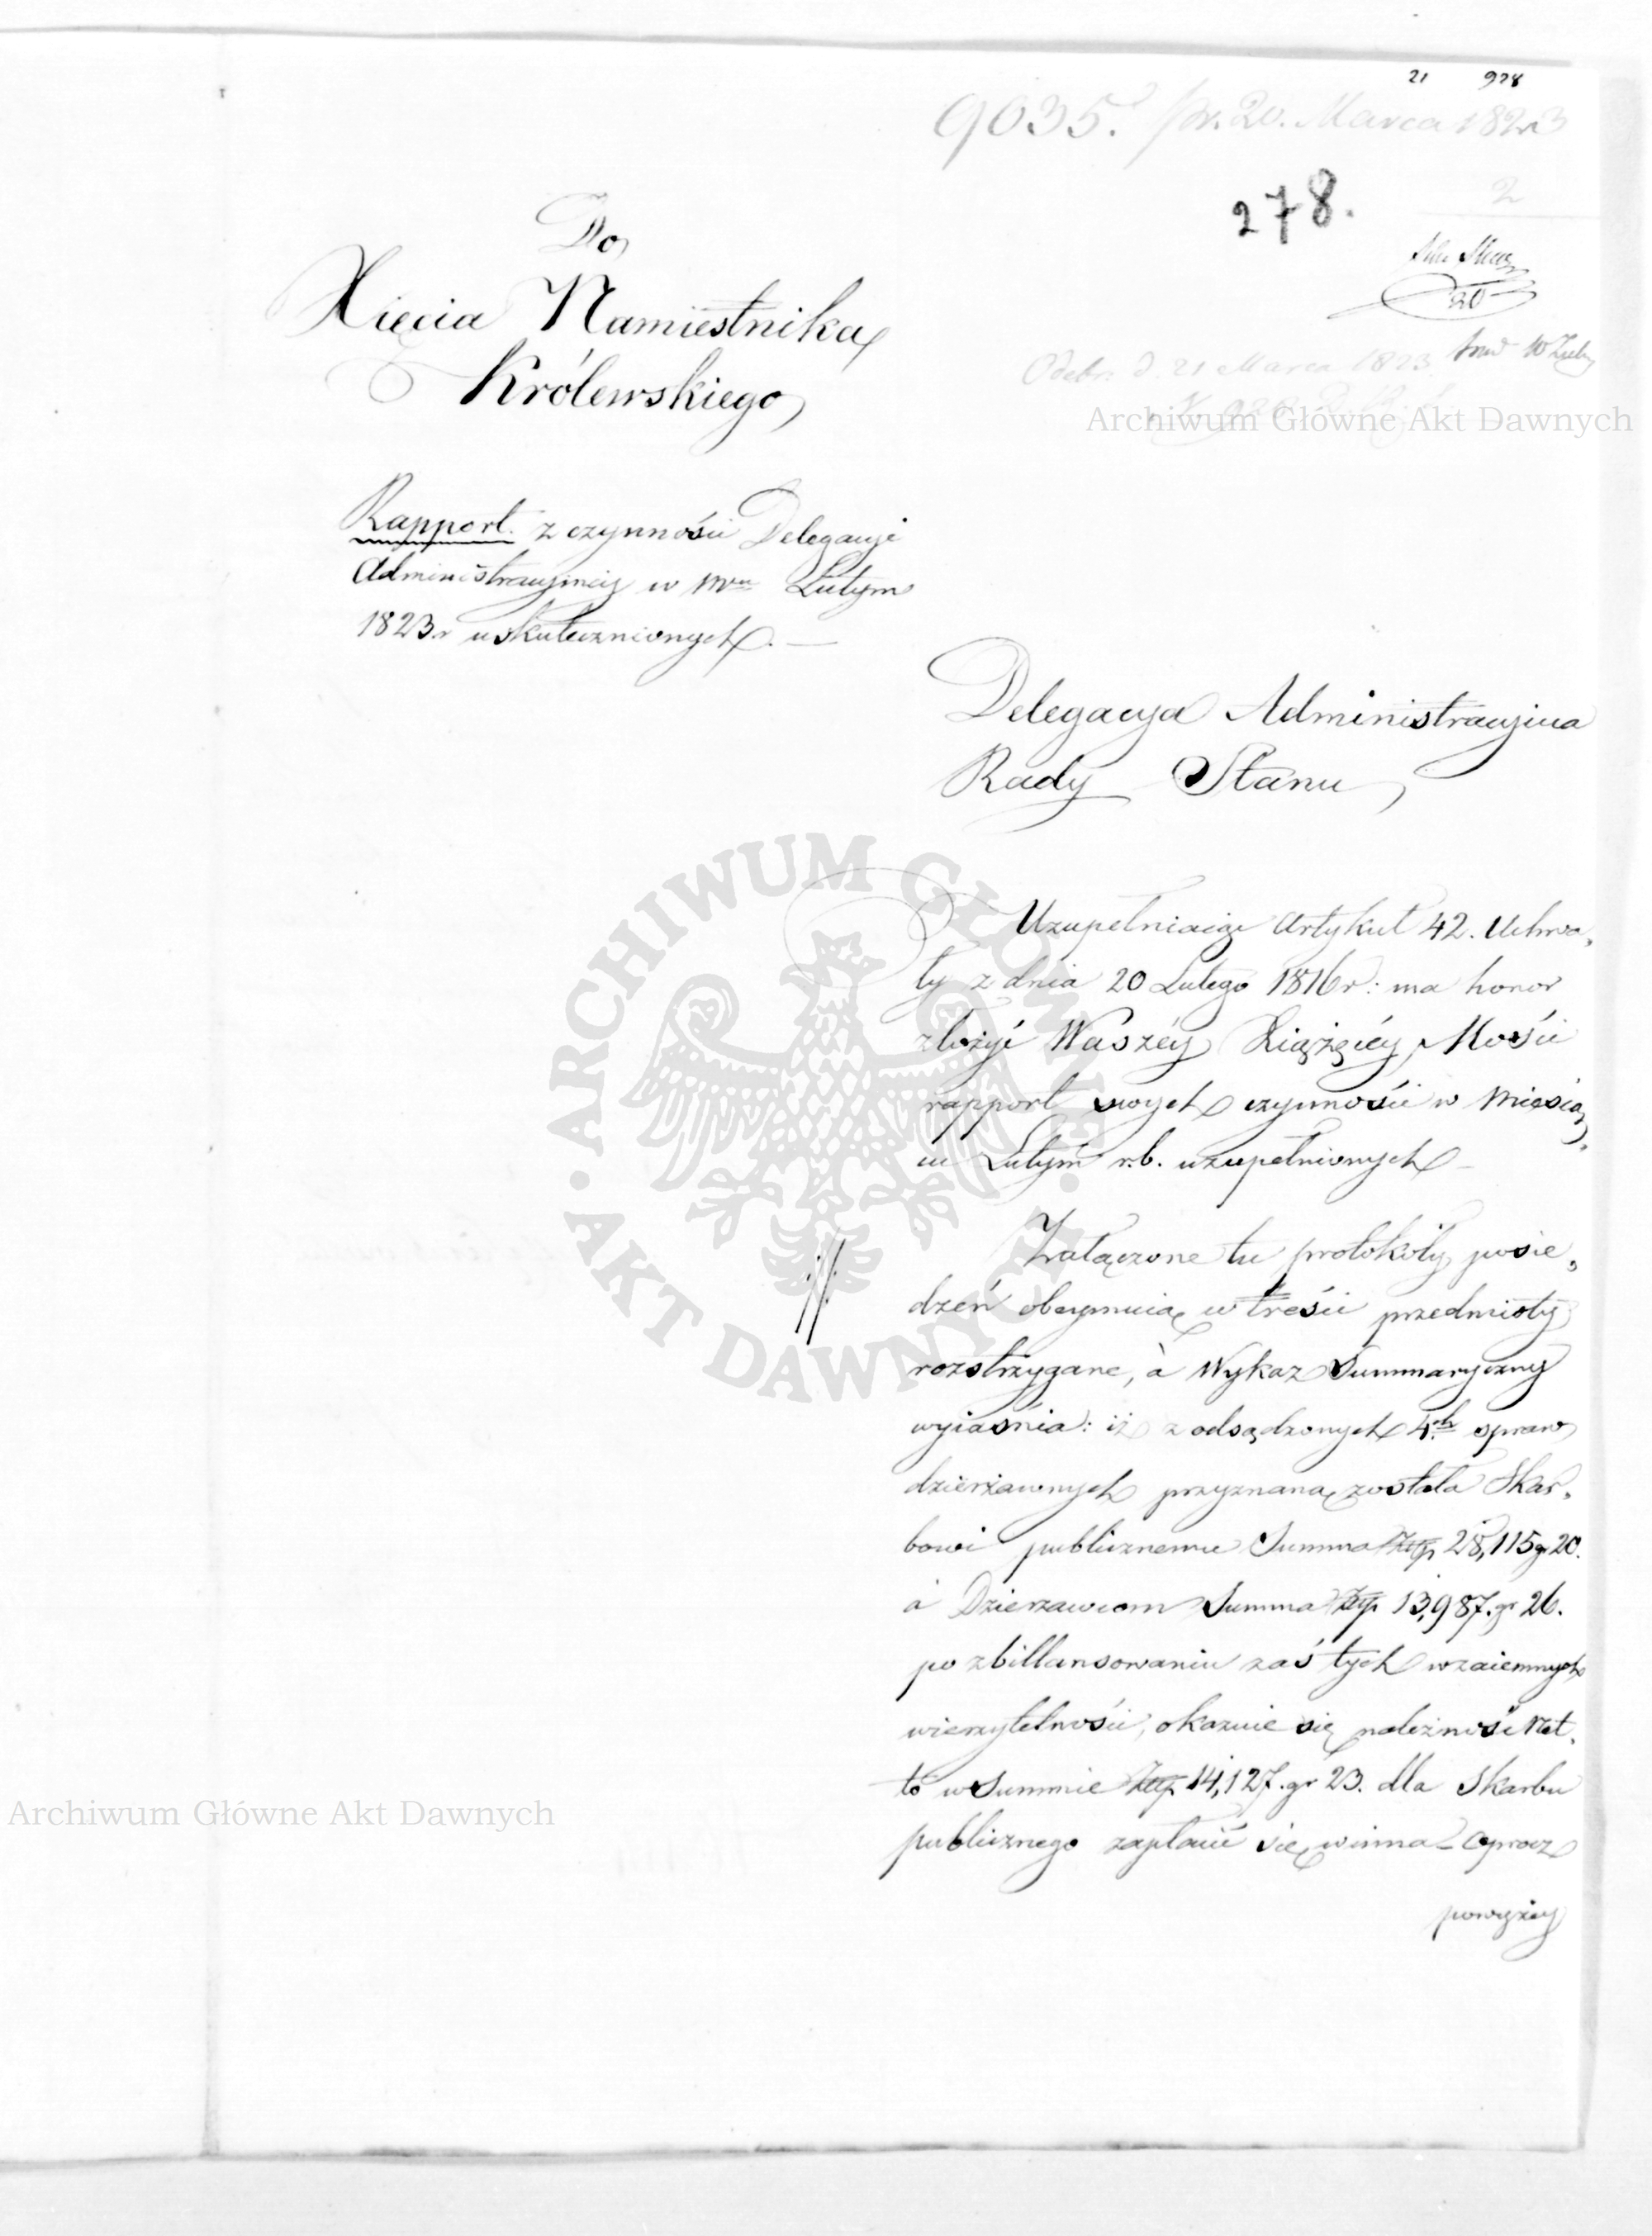 21 928
9035. pr. 20. Marca 1823
2
278.
20
Odebr. d. 21 Marca 1823
Archiwum Główne Akt Dawnych
Do
Xięcia Namiestnika
Królewskiego
Rapport z czynności Delegacyi
Administracyiney w Mcu Lutym
1823 r uskutecznionych. —
Delegacya Administracyina
Rady Stanu
Uzupełniaiąc Artykuł 42. Uchwa„
ły z dnia 20 Lutego 1816 r: ma honor
złożyć Waszéy Xiążęcéy Mości
rapport swych czynności w Miesią„
cu Lutym r.b. uzupełnionych —
Załączone tu protokóły posie„
dzeń obeymuią w treści przedmioty
rozstrzygane, à Wykaz Summaryczny
wyiaśnia: iż z odsądzonych 4ch spraw
dzierżawnych przyznaną została Skar„
bowi publicznemu Summa Złtp 28,115 gr 20.
à Dzierzawcom Summa Złtp 13,987. gr 26.
po zbillansowaniu zaś tych wzaiemnych
wierzytelności, okazuie się należność Net„
to w Summie Złtp 14,127. gr 23. dla Skarbu
publicznego zapłacić się winna – Oprocz
powyższey
ARCHIWUM GŁÓWNE AKT DAWNYCH
Archiwum Główne Akt Dawnych